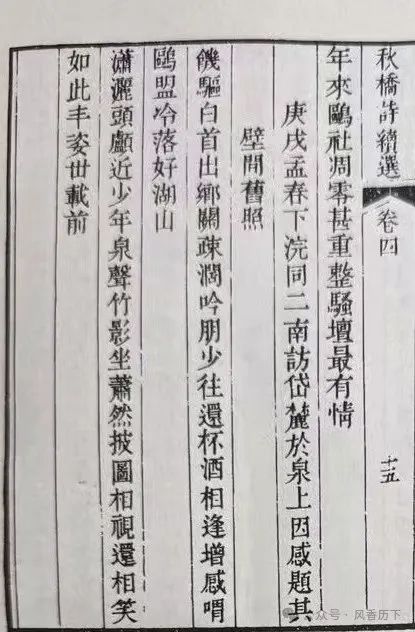 秋橋詩續選 卷四 十五
年來鷗社凋零甚重整騷壇最有情
庚戌孟春下浣同二南訪岱麓於泉上因感題其
壁間舊照
饑驅白首出鄉關疎濶吟朋少往還杯酒相逢增感喟
鷗盟冷落好湖山
瀟灑頭顱近少年泉聲竹影坐蕭然披圖相視還相笑
如此丰姿丗載前
公众号·风香历下